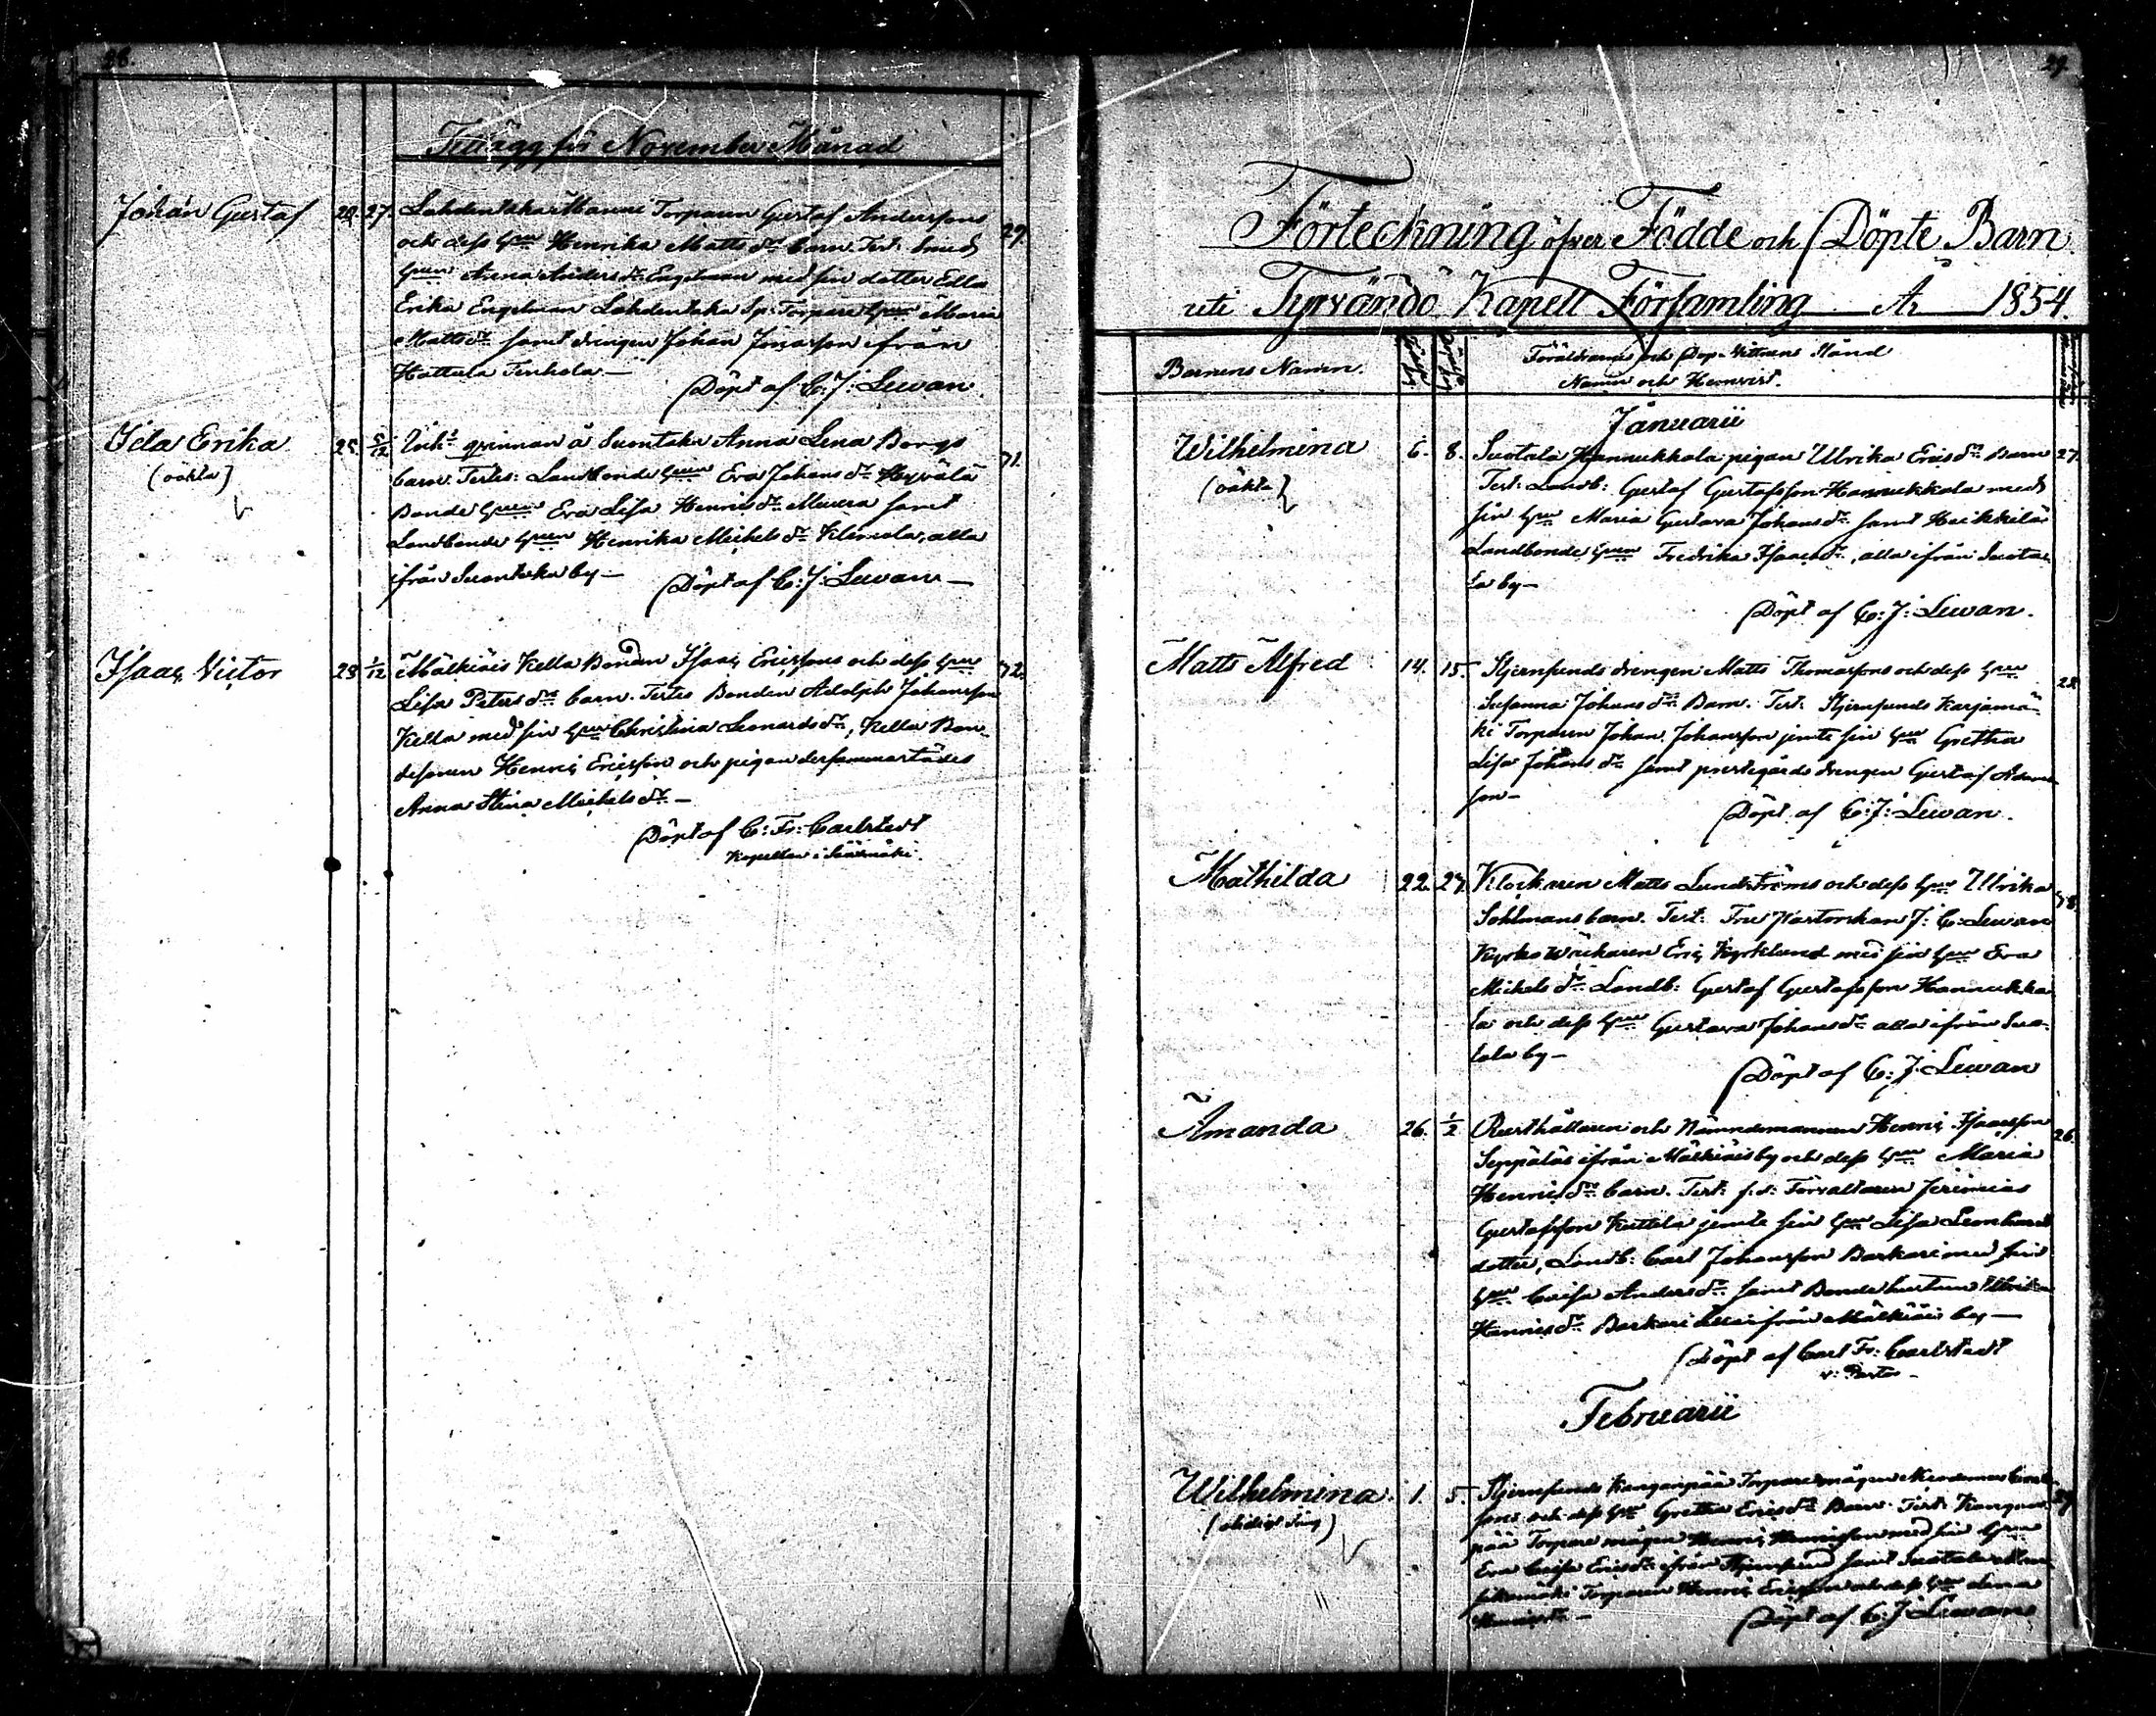 28.
Tillägg för November Månad
Johan Gustaf 20. 27. Lahdentaka Manni Torparen Gustaf Anderssons 29.
och dess hun Henrika Matts dr barn. Test: Smeds
hun Anna Anders dr Engelman med sin dotter Edla
Erika Engelman Lahdentaka Sp: Torpare hun Maria
Matts dr samt drengen Johan Jonasson ifrån
Hattula Tenhola.—
Döpt af C: J: Lewan.
Ida Erika 25. 5/12 Inh: qvinnan å Suontaka Anna Lena Bergs 31.
(oäkta)
barn. Testes: Landbonde hun Eva Johans dr
Bonde hun Eva Lisa Henrics dr samt
Landbonde hun Henrika Michels dr Klemola, alla
ifrån Suontaka by —
Döpt af C: J: Lewan —
Isaac Victor 28 1/12 Mälkiäis Kella Bonden Isaac Ericssons och dess hun 32.
Lisa Peters dr barn. Testes Bonden Adolph Johansson
Kella med sin hun Christina Leonards dr, Kella Bon-
desonen Henric Ericsson och pigan dersammastädes
Anna Stina Michels dr —
Döpt af C: Fr: Carlstedt
Kapellan i Sääxmäki.
29.
Förteckning öfver Födde och Döpte Barn
uti Tyrvändö Kapell Församling År 1854.
Barnens Namn.
Föräldrarnes och Dop-Vittnens Stånd
Namn och Hemvist.
Januarii
Wilhelmina 6. 8. Suotala Hannukkala pigan Ulrika Erics drs Barn 27.
(oäkta)
Test: Landb: Gustaf Gustafsson Hannukkala med
sin hun Maria Gustava Johans dr samt Heikkiläs
Landbonde hun Fredrika Isaacs dr, alla ifrån Suota-
la by —
Döpt af C: J: Lewan.
Matts Alfred 14. 15. Stjernsunds drengen Matts Thomassons och dess hun 22.
Susanna Johans drs Barn. Test: Stjernsunds Karjamä-
ki Torparen Johan Johansson jemte sin hun Gretha
Lisa Johans dr samt prestegårds drengen Gustaf Adams-
son —
Döpt af C: J: Lewan.
Mathilda 22. 27. Klockaren Matts Lundströms och dess hun Ulrika 38.
Sohlmans barn. Test: Fru Pastorskan J: C: Lewan
Kyrko Wäktaren Eric Kyrklund med sin hun Eva
Michels dr Landb: Gustaf Gustafsson Hannukka-
la och dess hun Gustava Johans dr alla ifrån Suo-
tala by —
Döpt af C: J: Lewan
Amanda 26. 1/2 Rusthållaren och Nämndemannen Henric Isaacsson 26.
Seppäläs ifrån Mälkiäis by och dess hun Maria
Henrics drs barn. Test: f: d: Förvaltaren Jeremias
Gustafsson Kuttila jemte sin hun Lisa Leonhards
dotter, Landb: Carl Johansson Barkari med sin
hun Caisa Anders dr samt Bonde hustrun Ulrika
Henrics dr Barkari alla ifrån Mälkiäis by —
Döpt af Carl Fr: Carlstedt
v: Pastor —
Februarii
Wilhelmina. 1. 5. Stjernsunds Kanganpää Torpare mågen
sons och dess hun Gretha Erics drs Barn. Test: Kangan-
pää Torpare mågen Henric Henricsson med sin hun
Eva Caisa Erics dr ifrån Stjernsund samt Suotala
Torparen Henric Ericsson och dess hun Lena
Henrics dr —
Döpt af C: J: Lewan